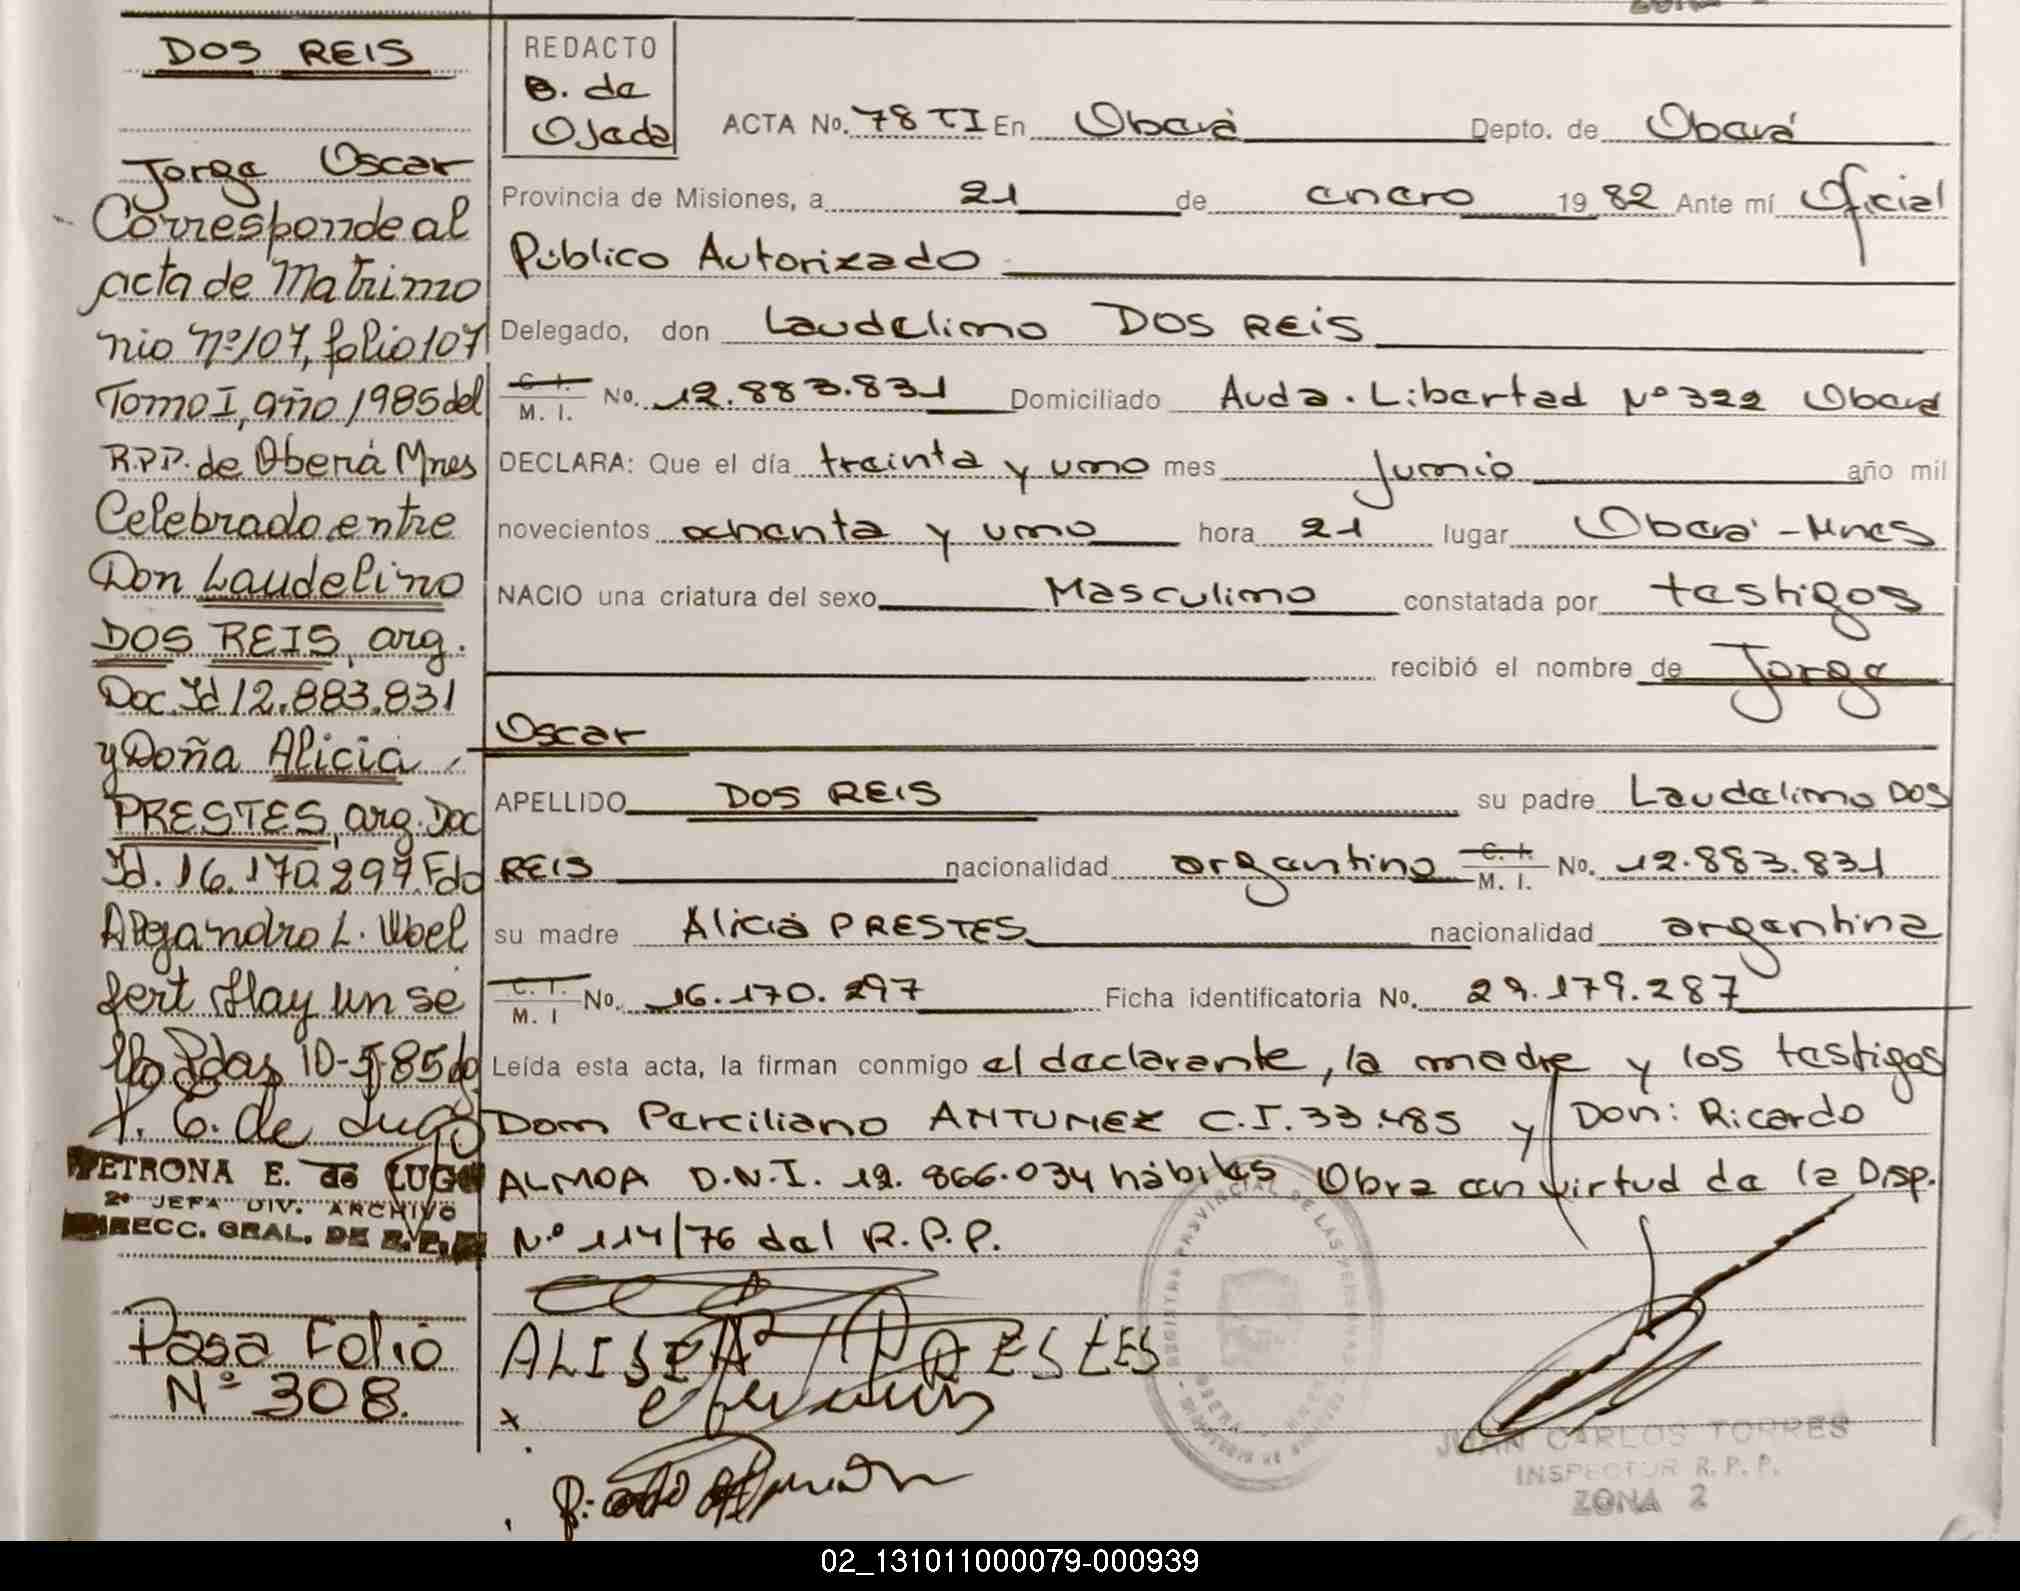 DOS REIS
Jorge Oscar
Corresponde al
acta de Matrimo
nio Nº 107, folio 107
Tomo I, año 1985 del
R.P.P. de Oberá Mnes
Celebrado entre
Don Laudelino
DOS REIS, arg.
Doc. Id 12.883.831
y Doña Alicia
PRESTES, arg. Doc
Id. 16.170.297 Fdo
Alejandro L. Woel
fert Hay un se
llo Pdas 10-5-85 do
P. E. de Lugo
PETRONA E. de LUGO
2º JEFA DIV. ARCHIVO
DIRECC. GRAL. DE R.P.P.
Pasa Folio
Nº 308.
REDACTO
B. de
Ojeda
ACTA No. 78 TI En Oberá Depto. de Oberá
Provincia de Misiones, a 21 de enero 1982 Ante mí Oficial
Público Autorizado
Delegado, don Laudelino DOS REIS
C. I. M. I. No. 12.883.831 Domiciliado Avda. Libertad Nº 322 Oberá
DECLARA: Que el día treinta y uno mes Junio año mil
novecientos ochenta y uno hora 21 lugar Oberá - Mnes
NACIO una criatura del sexo Masculino constatada por testigos
recibió el nombre de Jorge
Oscar
APELLIDO DOS REIS su padre Laudelino DOS
REIS nacionalidad argentino C. I. M. I. No. 12.883.831
su madre Alicia PRESTES nacionalidad argentina
C. I. M. I No. 16.170.297 Ficha identificatoria No. 29.179.287
Leída esta acta, la firman conmigo el declarante, la madre y los testigos
Don Perciliano ANTUNEZ C.I. 33.485 y Don: Ricardo
ALMOA D.N.I. 12.866.034 hábiles Obra en virtud de la Disp.
Nº 114/76 del R.P.P.
ALISIA PRESTES
JUAN CARLOS TORRES
INSPECTOR R. P. P.
ZONA 2
02_131011000079-000939